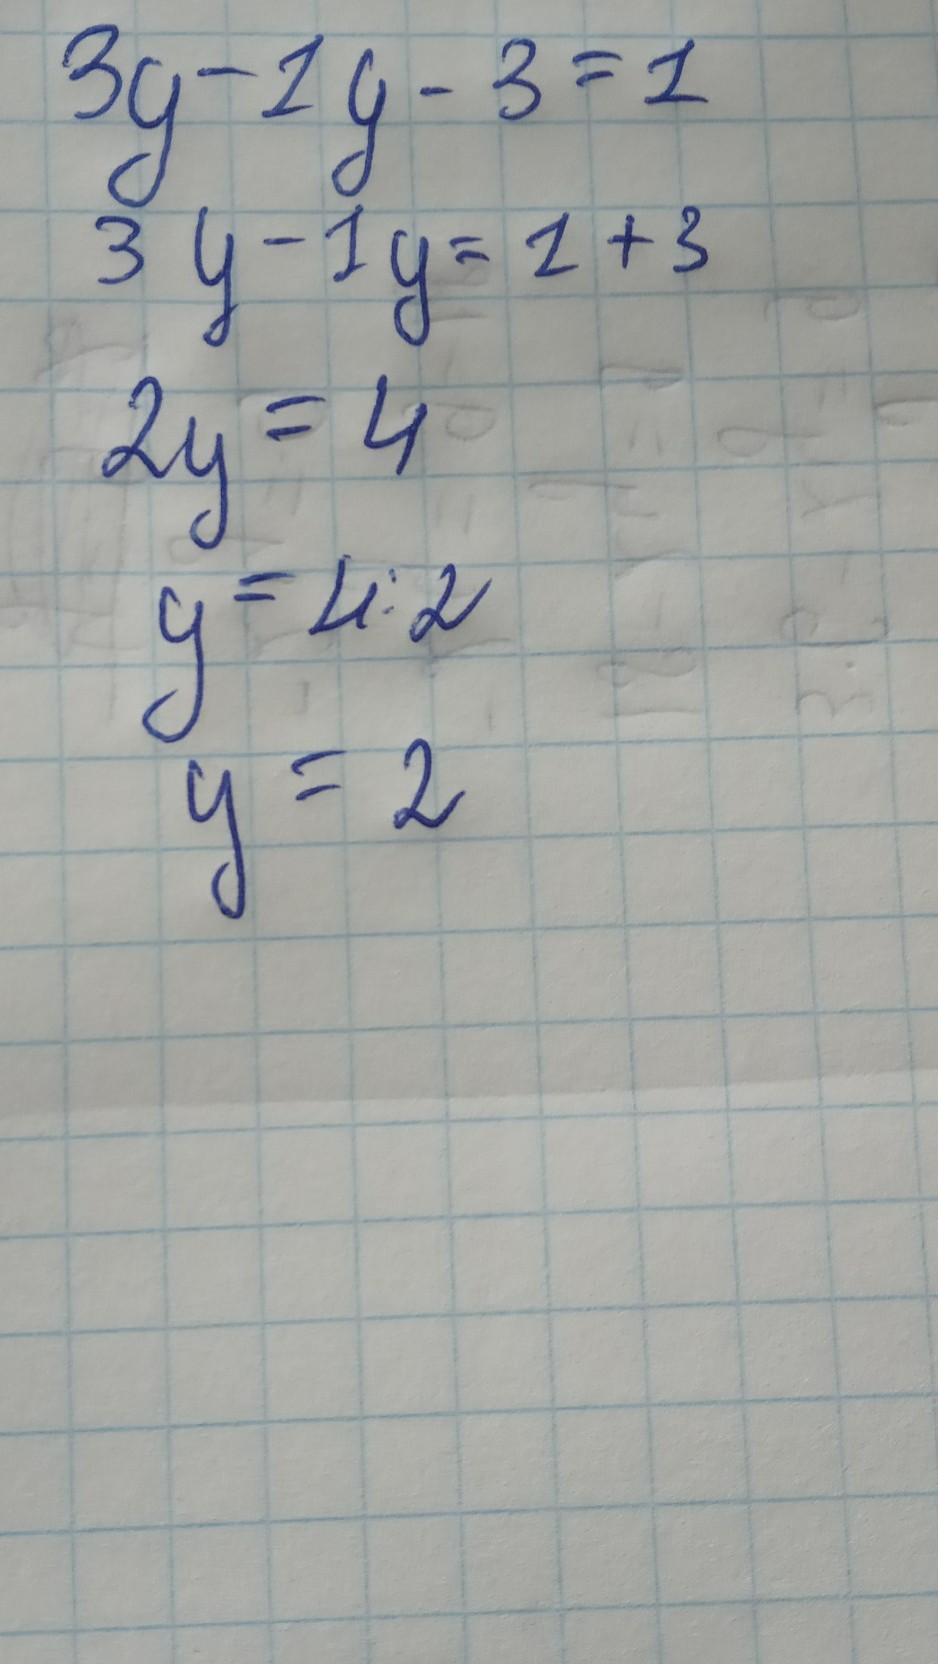 3y - 1y - 3 = 1
3y - 1y = 1 + 3
2y = 4
y = 4:2
y = 2